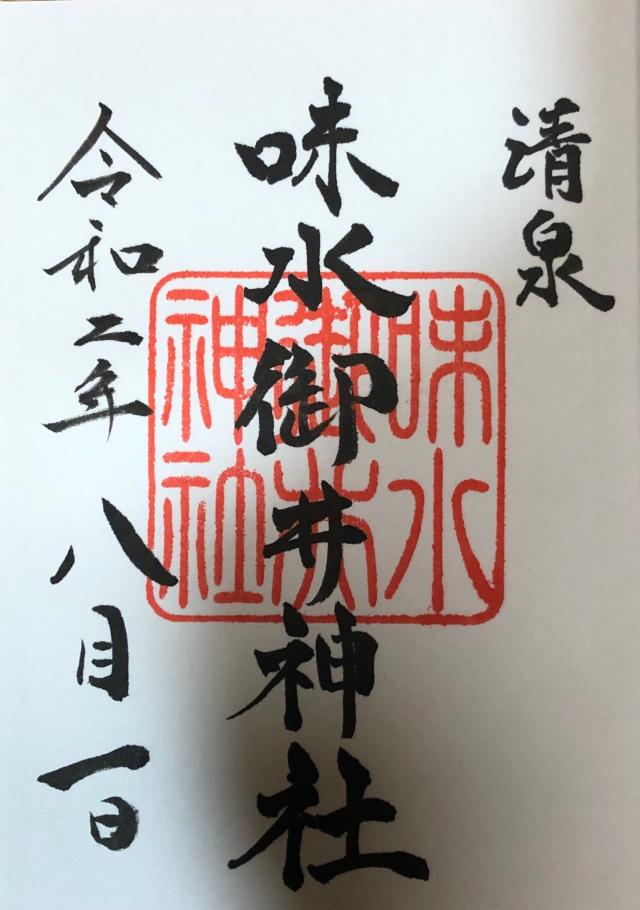 清泉
味水御井神社
味水御井神社
令和二年八月一日